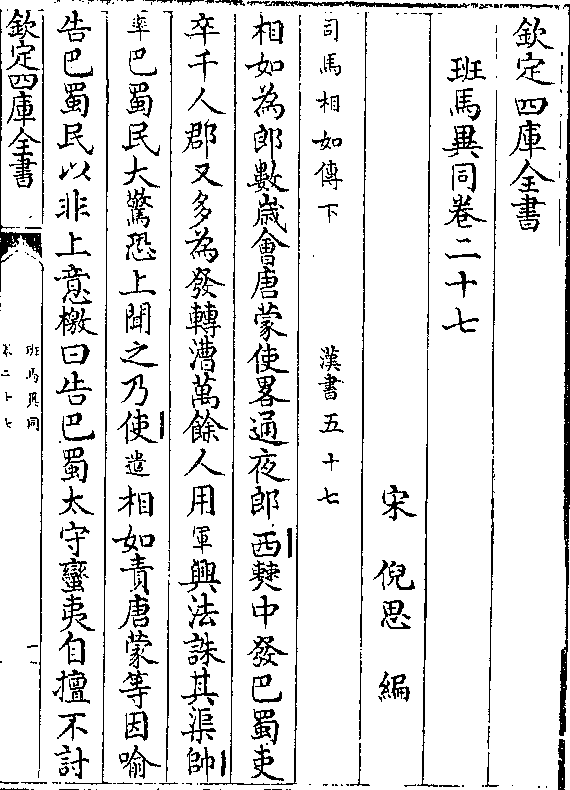 欽定四庫全書
班馬異同卷二十七
宋 倪思 編
司馬相如傳下 漢書五十七
相如為郎數歲會唐蒙使畧通夜郎西僰中發巴蜀吏
卒千人郡又多為發轉漕萬餘人用軍興法誅其渠帥
率巴蜀民大驚恐上聞之乃使遣相如責唐蒙等因喻
告巴蜀民以非上意檄曰告巴蜀太守蠻夷自擅不討
欽定四庫全書
班馬異同
卷二十七
一